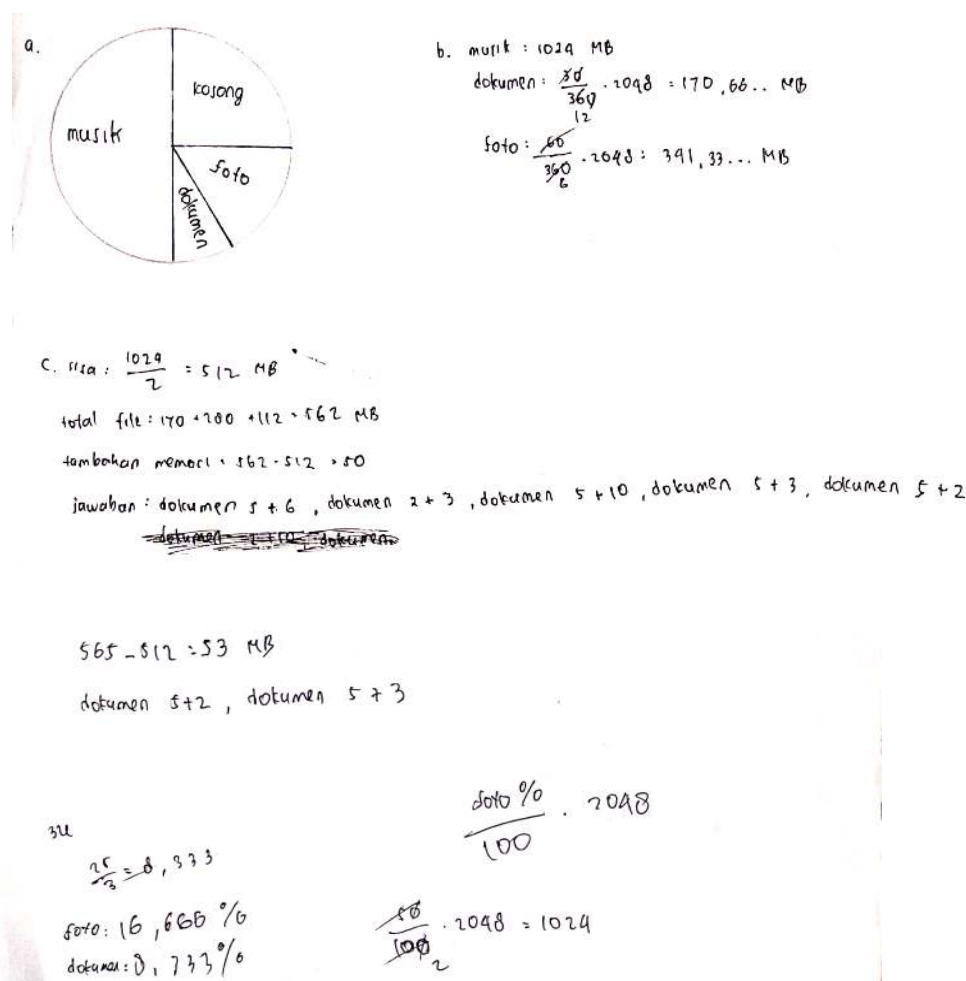 a.
kosong
musik
foto
dokumen
b. musik : 1024 MB
dokumen : 30/360 12 . 2048 = 170,66.. MB
foto : 60/360 6 . 2048 : 341,33... MB
C. sisa : 1024/2 = 512 MB
total file : 170 + 280 + 112 = 562 MB
tambahan memori : 562 - 512 = 50
jawaban : dokumen 5 + 6 , dokumen 2 + 3 , dokumen 5 + 10 , dokumen 5 + 3 , dokumen 5 + 2
565 - 512 = 53 MB
dokumen 5 + 2 , dokumen 5 + 3
foto %/100 . 2048
25/3 = 8,333
foto : 16,666 %
dokumen : 8,333 %
50/100 2 . 2048 = 1024